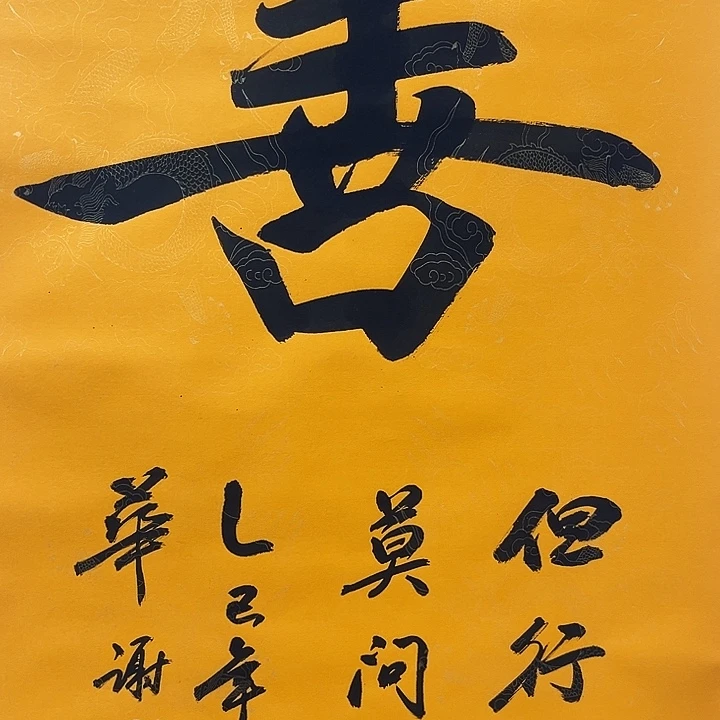 善
但行
莫问
乙巳年
华谢